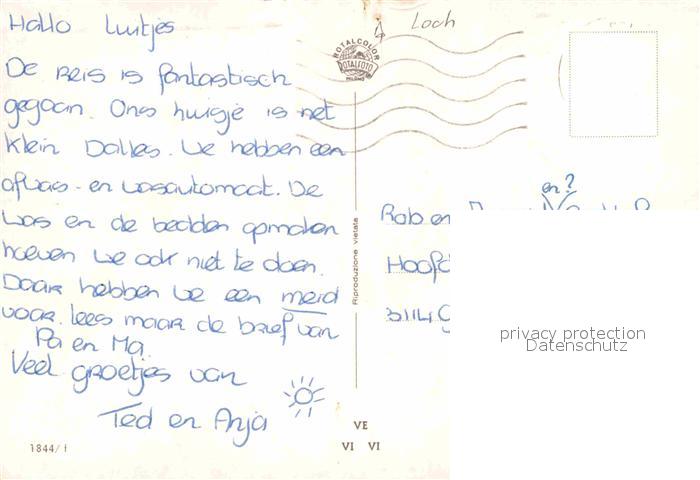 Hallo Luitjes
De reis is fantastisch
gegaan. Ons huisje is net
Klein Dallas. We hebben een
afwas- en wasautomaat. De
was en de bedden opmaken
hoeven we ook niet te doen.
Daar hebben we een meid
voor. Lees maar de brief van
Pa en Ma.
Veel groetjes van
Ted en Anja
1844/f
Loch
ROTALCOLOR
ROTALFOTO
MILANO
Riproduzione vietata
en?
Rob en
Hoofd
3114 G
privacy protection
Datenschutz
VE
VI VI